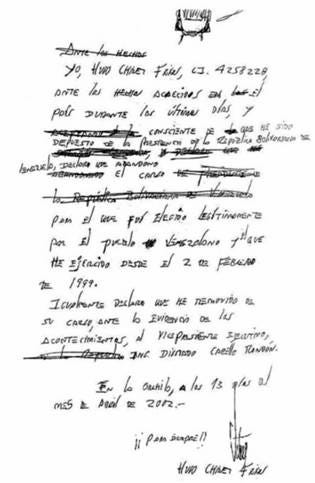 Ante los hechos
Yo, Hugo Chávez Frías, C.I. 4258228,
ante los hechos acaecidos en el
país durante los últimos días y
consciente de que he sido
depuesto de la Presidencia de la República Bolivariana de
Venezuela, declaro que abandono
el cargo de
la República Bolivariana de Venezuela
para el que fui elegido legítimamente
por el pueblo venezolano y que
he ejercido desde el 2 de febrero
de 1999.
Igualmente declaro que he removido de
su cargo, ante la evidencia de los
acontecimientos, al Vicepresidente Ejecutivo,
Ing. Diosdado Cabello Rondón.
En la Orchila, a los 13 días del
mes de abril de 2002.-
¡¡Para siempre!!
Hugo Chávez Frías